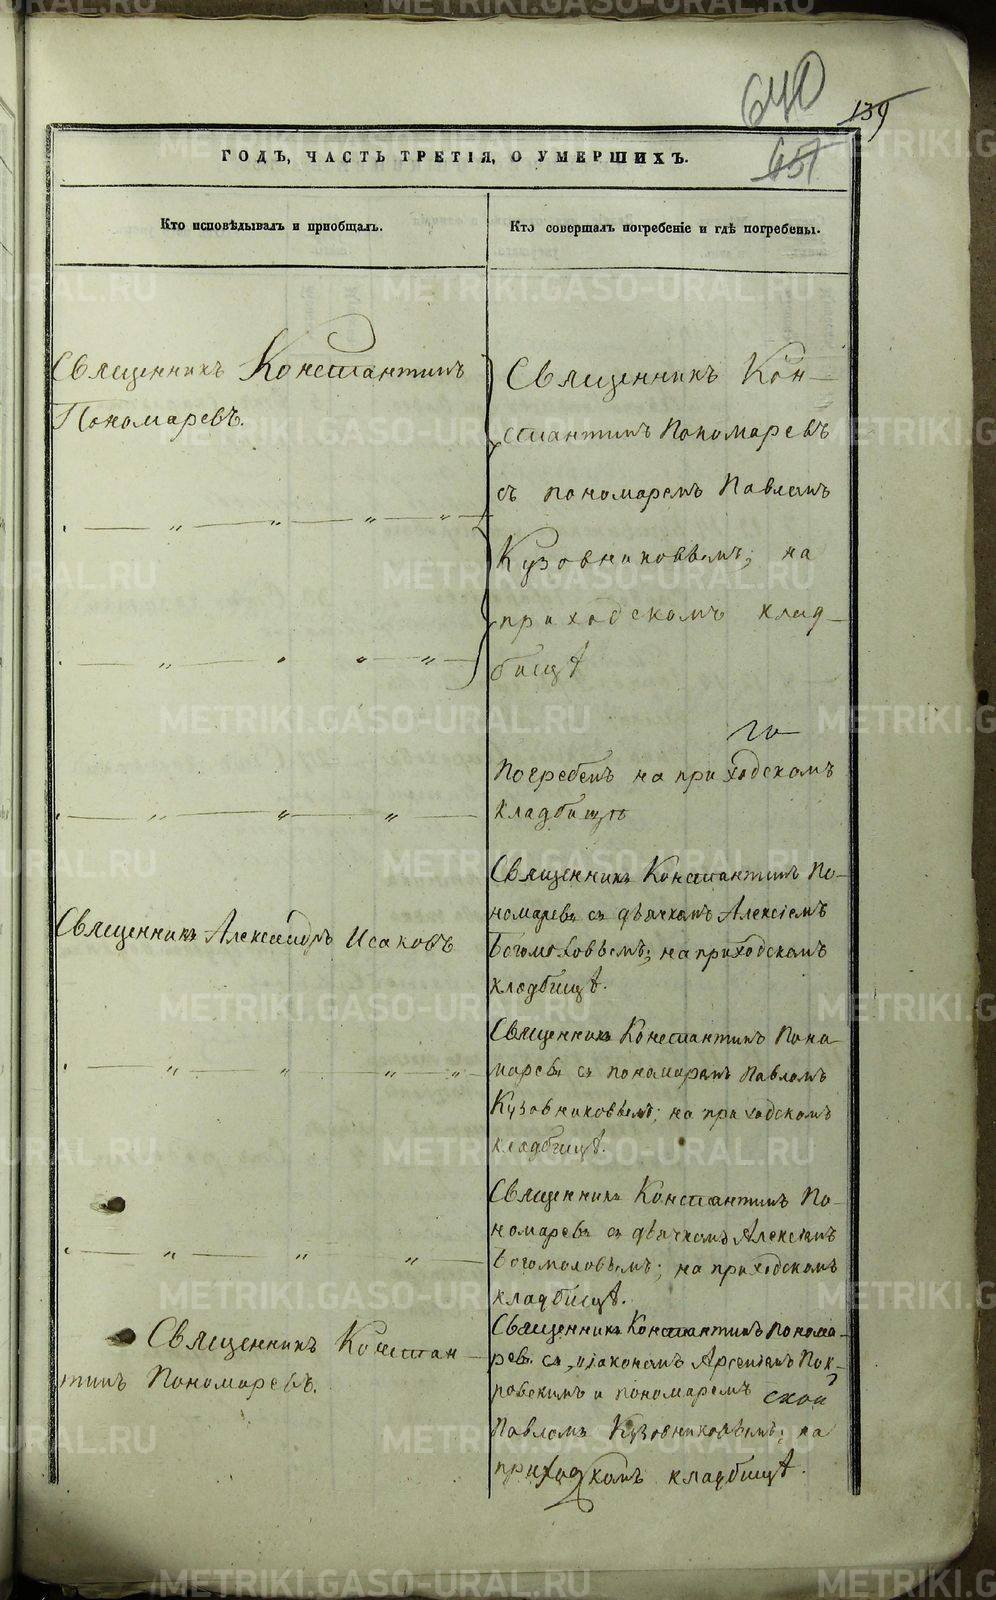 640
139
151
ГОДЪ, ЧАСТЬ ТРЕТІЯ, О УМЕРШИХЪ.
Кто исповѣдывалъ и пріобщалъ.
Священникъ Константинъ
Пономаревъ.
Священникъ Александръ Исаковъ
Священникъ Констан-
тинъ Пономаревъ.
Кто совершалъ погребеніе и гдѣ погребены.
Священникъ Кон-
стантинъ Пономаревъ
съ пономаремъ Павломъ
Кузовниковымъ; на
приходскомъ клад-
бищѣ
Погребенъ на приходскомъ
кладбищѣ
Священникъ Константинъ По-
номаревъ съ дьячкомъ Алексіемъ
Богомоловымъ; на приходскомъ
кладбищѣ.
Священникъ Константинъ Поно-
маревъ съ пономаремъ Павломъ
Кузовниковымъ; на приходскомъ
кладбищѣ.
Священникъ Константинъ По-
номаревъ съ дьячкомъ Алексіемъ
Богомоловымъ; на приходскомъ
кладбищѣ.
Священникъ Константинъ Понома-
ревъ съ діакономъ Арсеніемъ Пок-
ровскимъ и пономаремъ
Павломъ Кузовниковымъ; на
приходскомъ кладбищѣ.
METRIKI.GASO-URAL.RU